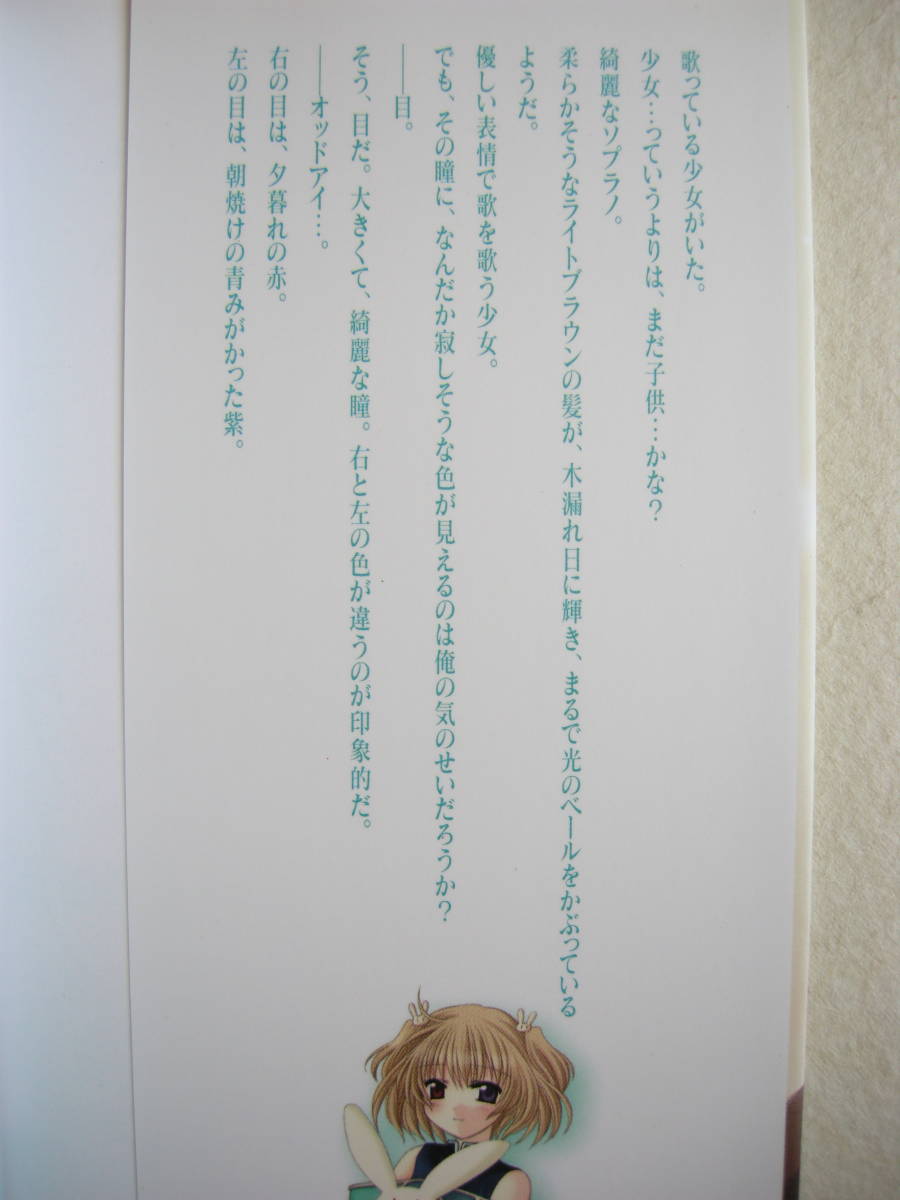 歌っている少女がいた。
少女…っていうよりは、まだ子供…かな？
綺麗なソプラノ。
柔らかそうなライトブラウンの髪が、木漏れ日に輝き、まるで光のベールをかぶっている
ようだ。
優しい表情で歌を歌う少女。
でも、その瞳に、なんだか寂しそうな色が見えるのは俺の気のせいだろうか？
――目。
そう、目だ。大きくて、綺麗な瞳。右と左の色が違うのが印象的だ。
――オッドアイ…。
右の目は、夕暮れの赤。
左の目は、朝焼けの青みがかった紫。